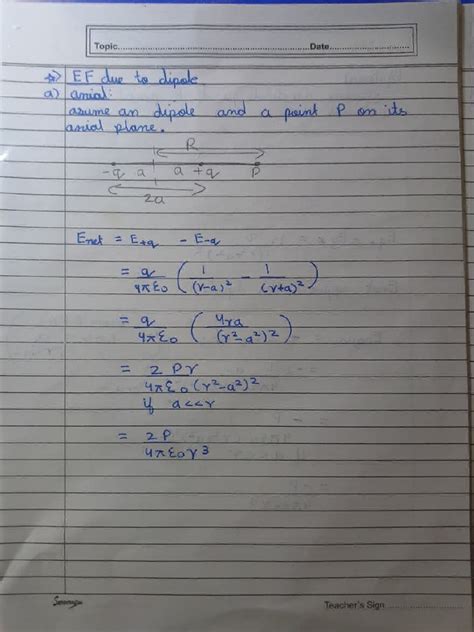 Topic.......... Date..........
☆) EF due to dipole
a) axial:
assume an dipole and a point P on its
axial plane.
R
-q a a +q P
2a
Enet = E+q - E-q
= q/4πε0 (1/(r-a)² - 1/(r+a)²)
= q/4πε0 (4ra/(r²-a²)²)
= 2Pr/4πε0(r²-a²)²
if a<<r
= 2P/4πε0r³
Teacher's Sign..........